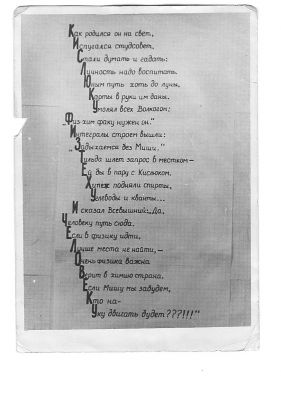 Как родился он на свет,
Испугался студсовет,
Стали думать и гадать:
Личность надо воспитать.
Юным путь хоть до луны,
Карты в руки им даны.
Умолял всех Волкогон:
„Физ-хим факу нужен он."
Интегралы строем вышли:
„Задыхаемся без Миши."
Тильда шлет запрос в местком—
Ей бы в пару с Кисыком.
Хипеж подняли спирты,
Углеводы и кванты...
И сказал Всевышний:„Да,
Человеку путь сюда.
Если в физику идти,
Лучше места не найти,—
Очень физика важна
Верит в химию страна,
Если Мишу мы забудем,
Кто на-
Уку двигать будет???!!!"